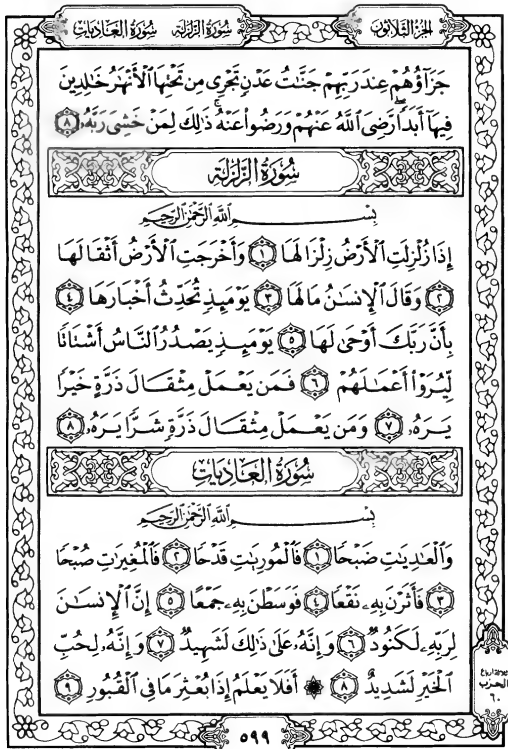 الجزء الثلاثون سورة الزلزلة سورة العاديات
جَزَآؤُهُمْ عِندَ رَبِّهِمْ جَنَّٰتُ عَدْنٍ تَجْرِى مِن تَحْتِهَا ٱلْأَنْهَٰرُ خَٰلِدِينَ
فِيهَآ أَبَدًا رَّضِىَ ٱللَّهُ عَنْهُمْ وَرَضُوا۟ عَنْهُ ذَٰلِكَ لِمَنْ خَشِىَ رَبَّهُۥ ٨
سُورَةُ الزَّلْزَلَةِ
بِسْمِ ٱللَّهِ ٱلرَّحْمَٰنِ ٱلرَّحِيمِ
إِذَا زُلْزِلَتِ ٱلْأَرْضُ زِلْزَالَهَا ١ وَأَخْرَجَتِ ٱلْأَرْضُ أَثْقَالَهَا
٢ وَقَالَ ٱلْإِنسَٰنُ مَا لَهَا ٣ يَوْمَئِذٍ تُحَدِّثُ أَخْبَارَهَا ٤
بِأَنَّ رَبَّكَ أَوْحَىٰ لَهَا ٥ يَوْمَئِذٍ يَصْدُرُ ٱلنَّاسُ أَشْتَاتًا
لِّيُرَوْا۟ أَعْمَٰلَهُمْ ٦ فَمَن يَعْمَلْ مِثْقَالَ ذَرَّةٍ خَيْرًا
يَرَهُۥ ٧ وَمَن يَعْمَلْ مِثْقَالَ ذَرَّةٍ شَرًّا يَرَهُۥ ٨
سُورَةُ العَادِيَاتِ
بِسْمِ ٱللَّهِ ٱلرَّحْمَٰنِ ٱلرَّحِيمِ
وَٱلْعَٰدِيَٰتِ ضَبْحًا ١ فَٱلْمُورِيَٰتِ قَدْحًا ٢ فَٱلْمُغِيرَٰتِ صُبْحًا
٣ فَأَثَرْنَ بِهِۦ نَقْعًا ٤ فَوَسَطْنَ بِهِۦ جَمْعًا ٥ إِنَّ ٱلْإِنسَٰنَ
لِرَبِّهِۦ لَكَنُودٌ ٦ وَإِنَّهُۥ عَلَىٰ ذَٰلِكَ لَشَهِيدٌ ٧ وَإِنَّهُۥ لِحُبِّ
ٱلْخَيْرِ لَشَدِيدٌ ٨ ۞ أَفَلَا يَعْلَمُ إِذَا بُعْثِرَ مَا فِى ٱلْقُبُورِ ٩
الحزب
٦٠
٥٩٩